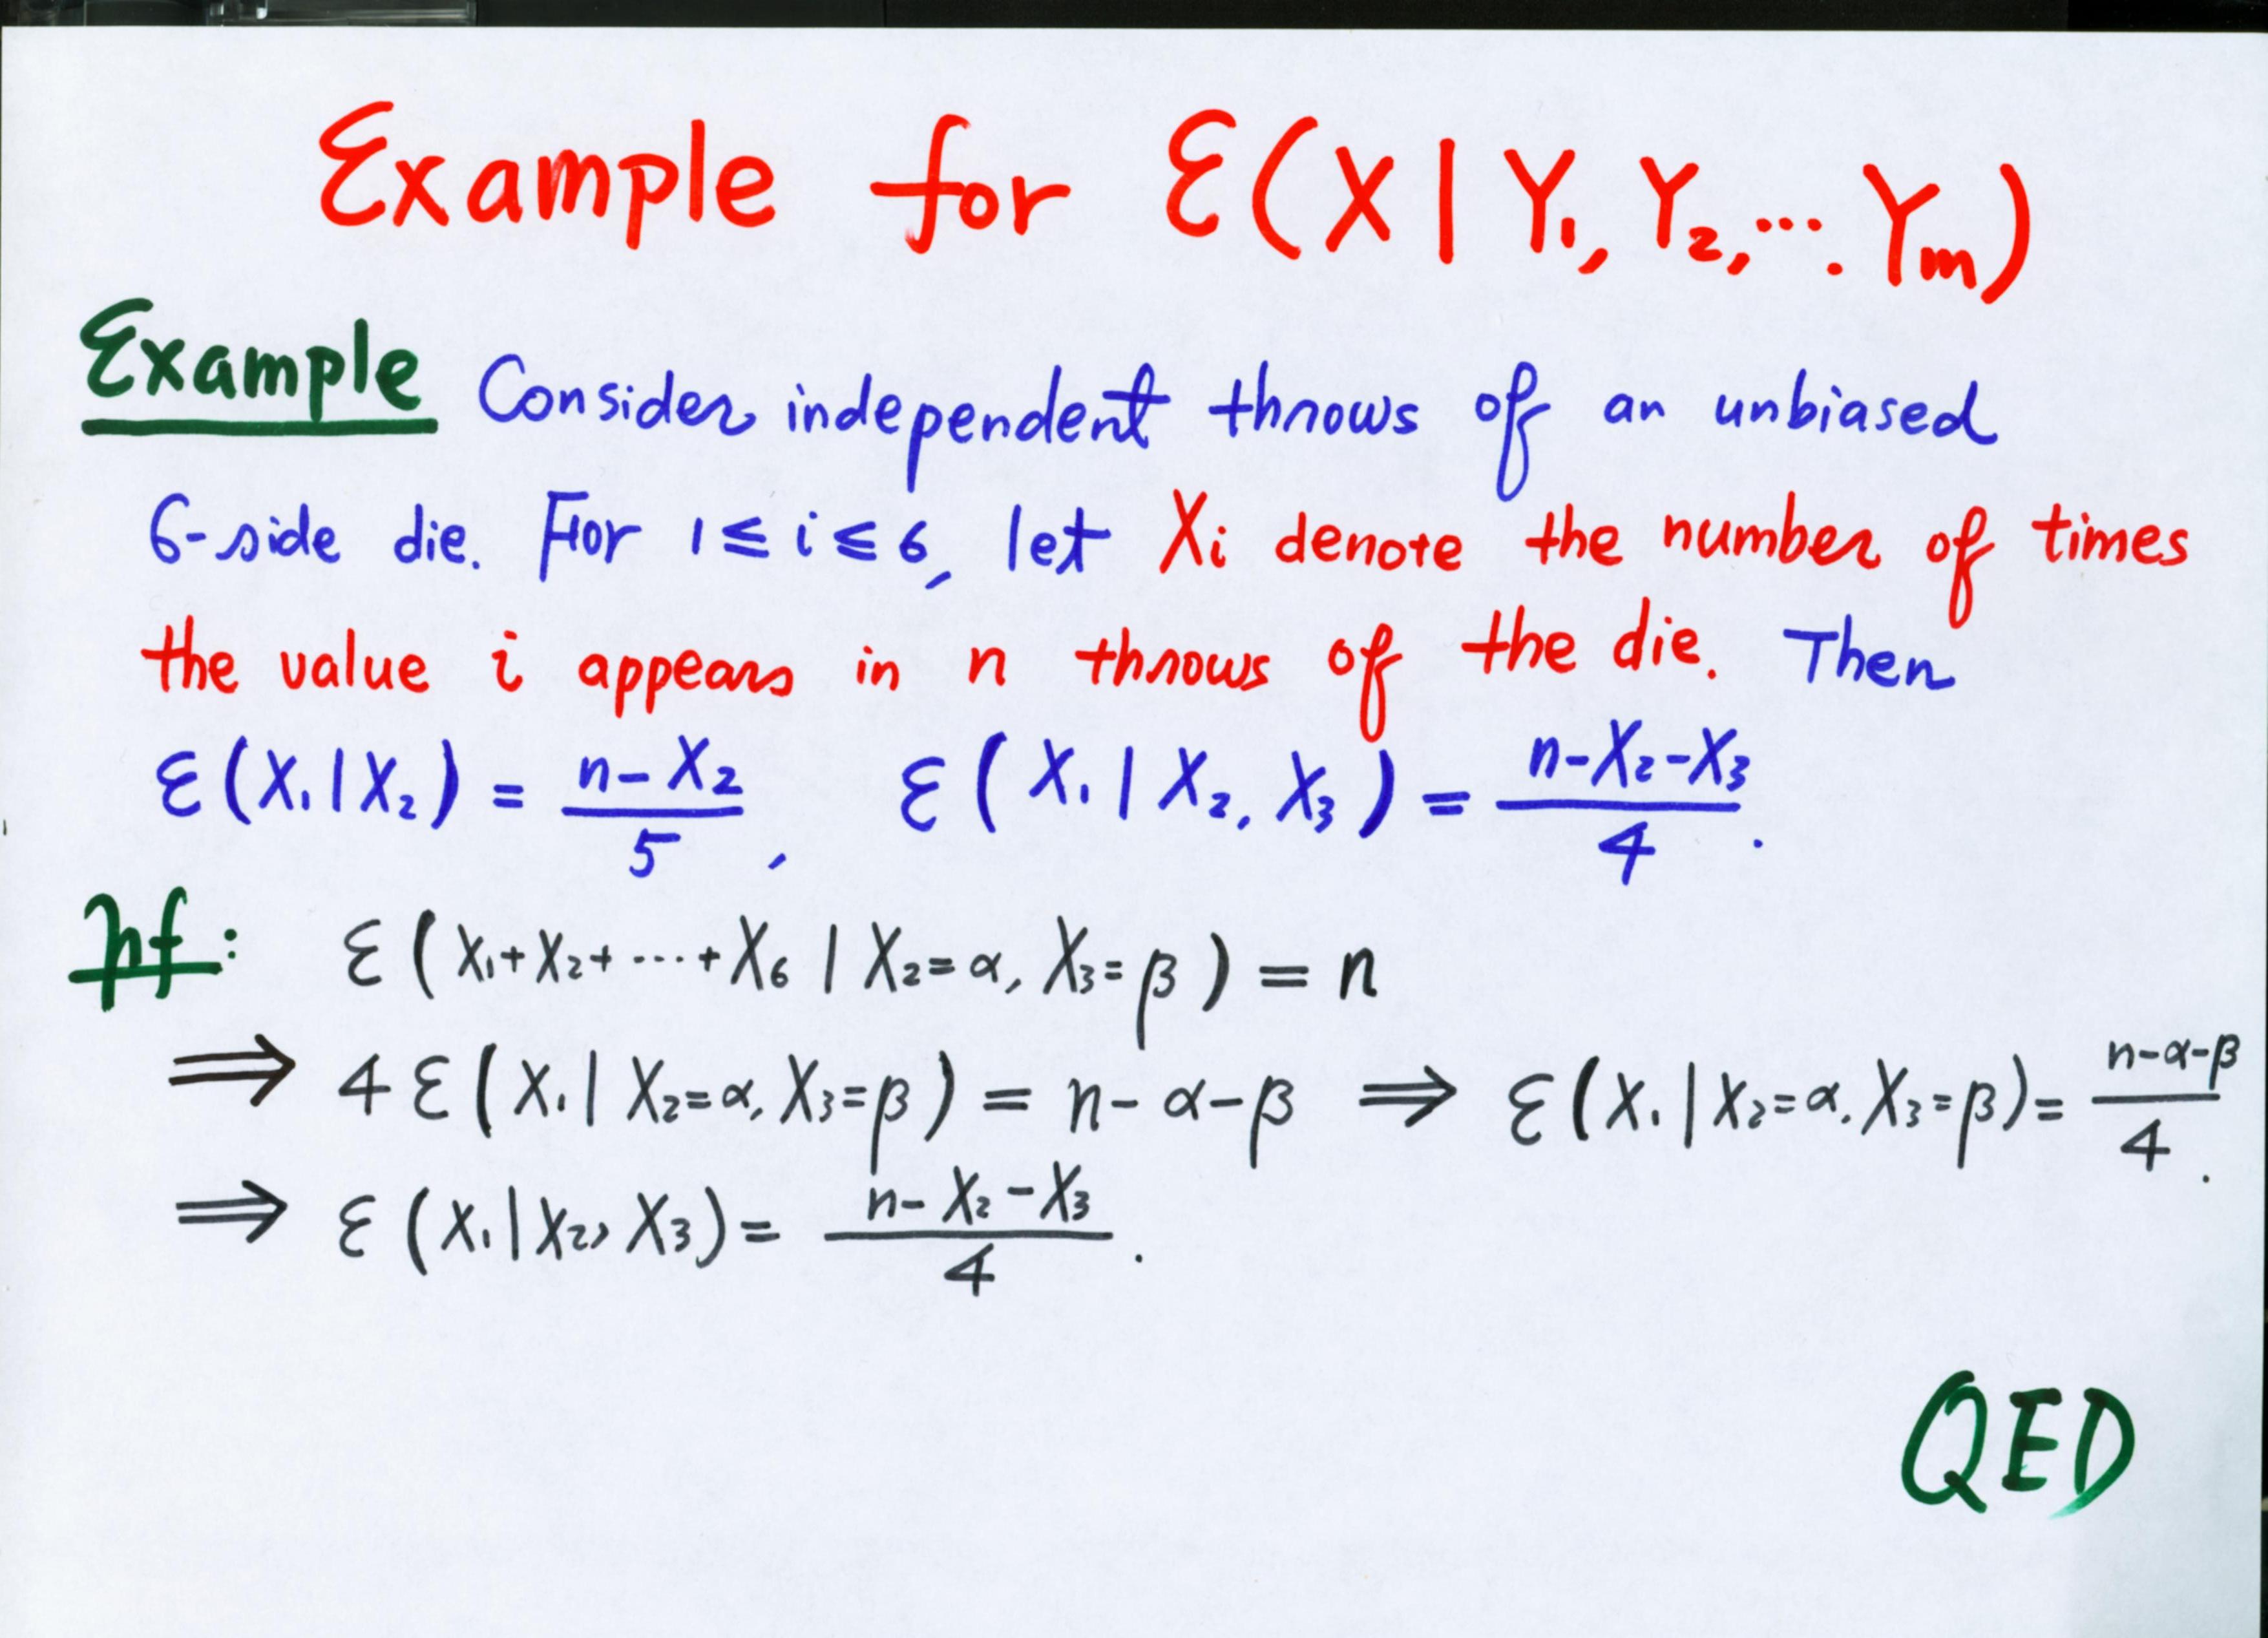 Example for ε(X | Y₁, Y₂, .... Yₘ)
Example Consider independent throws of an unbiased
6-side die. For 1 ≤ i ≤ 6, let Xi denote the number of times
the value i appears in n throws of the die. Then
ε(X₁ | X₂) = (n - X₂)/5 , ε(X₁ | X₂, X₃) = (n-X₂-X₃)/4 .
pf: ε(X₁+X₂+ ... +X₆ | X₂=α, X₃=β) = n
⟹ 4 ε(X₁ | X₂=α, X₃=β) = n-α-β ⟹ ε(X₁ | X₂=α, X₃=β) = (n-α-β)/4 .
⟹ ε(X₁ | X₂, X₃) = (n-X₂-X₃)/4 .
QED